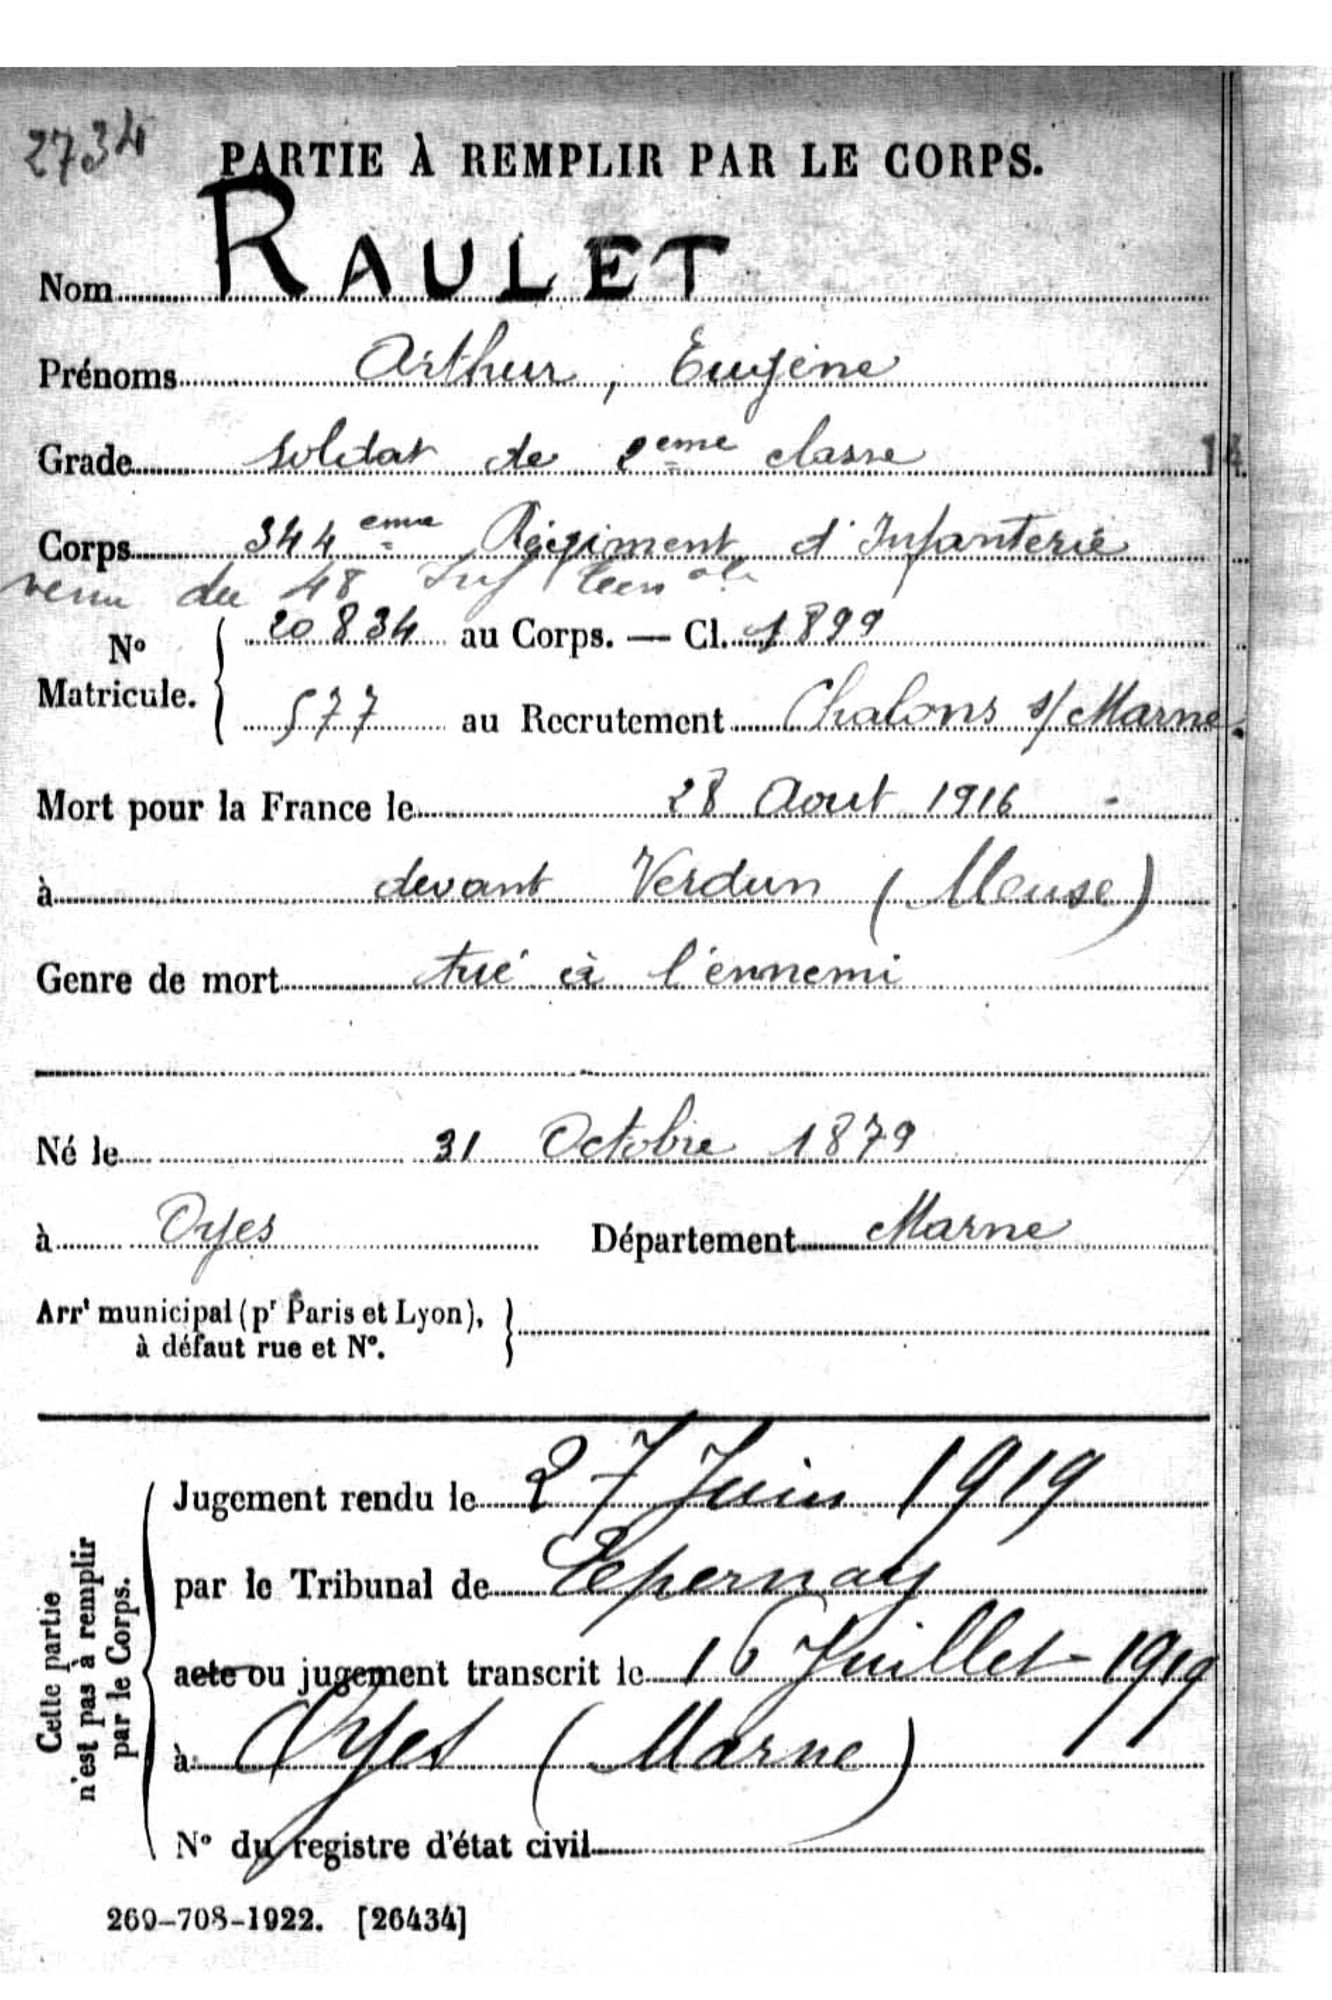 2734
PARTIE À REMPLIR PAR LE CORPS.
Nom RAULET
Prénoms Arthur, Eugène
Grade soldat de 2eme classe
14
Corps 344eme Régiment d'Infanterie
venu du 48 Inf
No Matricule. 20834 au Corps. — Cl. 1899
577 au Recrutement Chalons s/Marne
Mort pour la France le 28 Aout 1916
à devant Verdun (Meuse)
Genre de mort tué à l'ennemi
Né le 31 Octobre 1879
à Oyes Département Marne
Arrt municipal (pr Paris et Lyon),
à défaut rue et No.
Cette partie
n'est pas à remplir
par le Corps.
Jugement rendu le 27 Juin 1919
par le Tribunal de Epernay
acte ou jugement transcrit le 16 Juillet 1919
à Oyes (Marne)
No du registre d'état civil
269-708-1922. [26434]